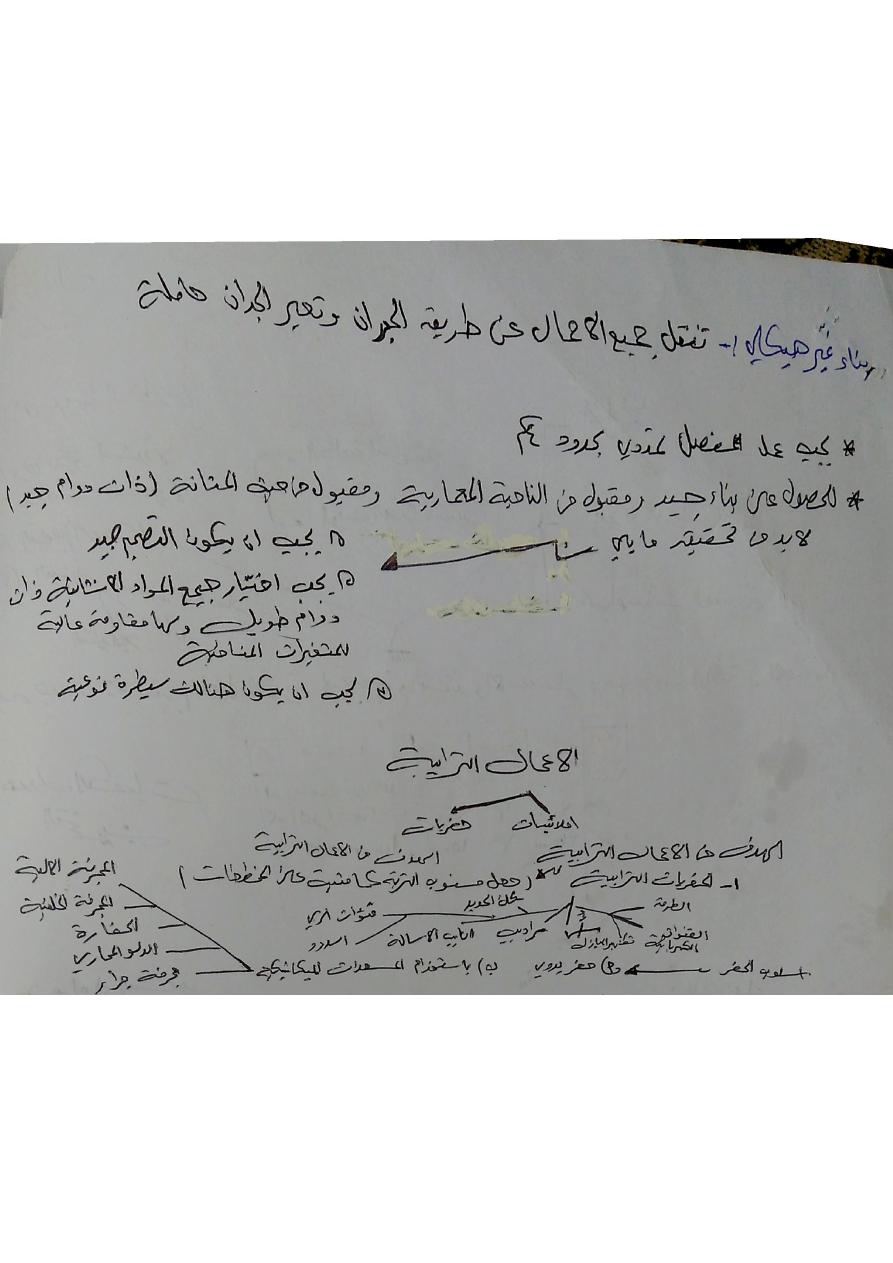 بناء غير هيكلي :- تنتقل جميع الاحمال عن طريق الجدران وتعبر الجدان حاملة
* يجب عمل المفصل تمددي بحدود
* للحصول على بناء جيد ومقبول من الناحية المعمارية ومقبول من ناحية المتانة (ذات دوام جيد)
لابد من تحقيق ما يلي
يجب ان يكون التصميم جيد
يجب اختيار جميع المواد الانشائية ذات
دوام طويل ولها مقاومة عالية
للمتغيرات المناخية
يجب ان يكون هنالك سيطرة نوعية
الاعمال الترابية
املائيات حفريات
الهدف من الاعمال الترابية
الهدف من الاعمال الترابية
١- الحفريات الترابية (جعل منسوب التربة كما مثبتة على المخططات)
الطرق
سكك الحديد
قنوات الري
سراديب
انابيب الاسالة
السدود
القنوات
الكهربائية
اسلوب الحفر حفر يدوي ب) باستخدام المعدات الميكانيكية
المجرفة الالية
المجرفة الخلفية
الحفارة
الدلو المحاري
مجرفة جراء